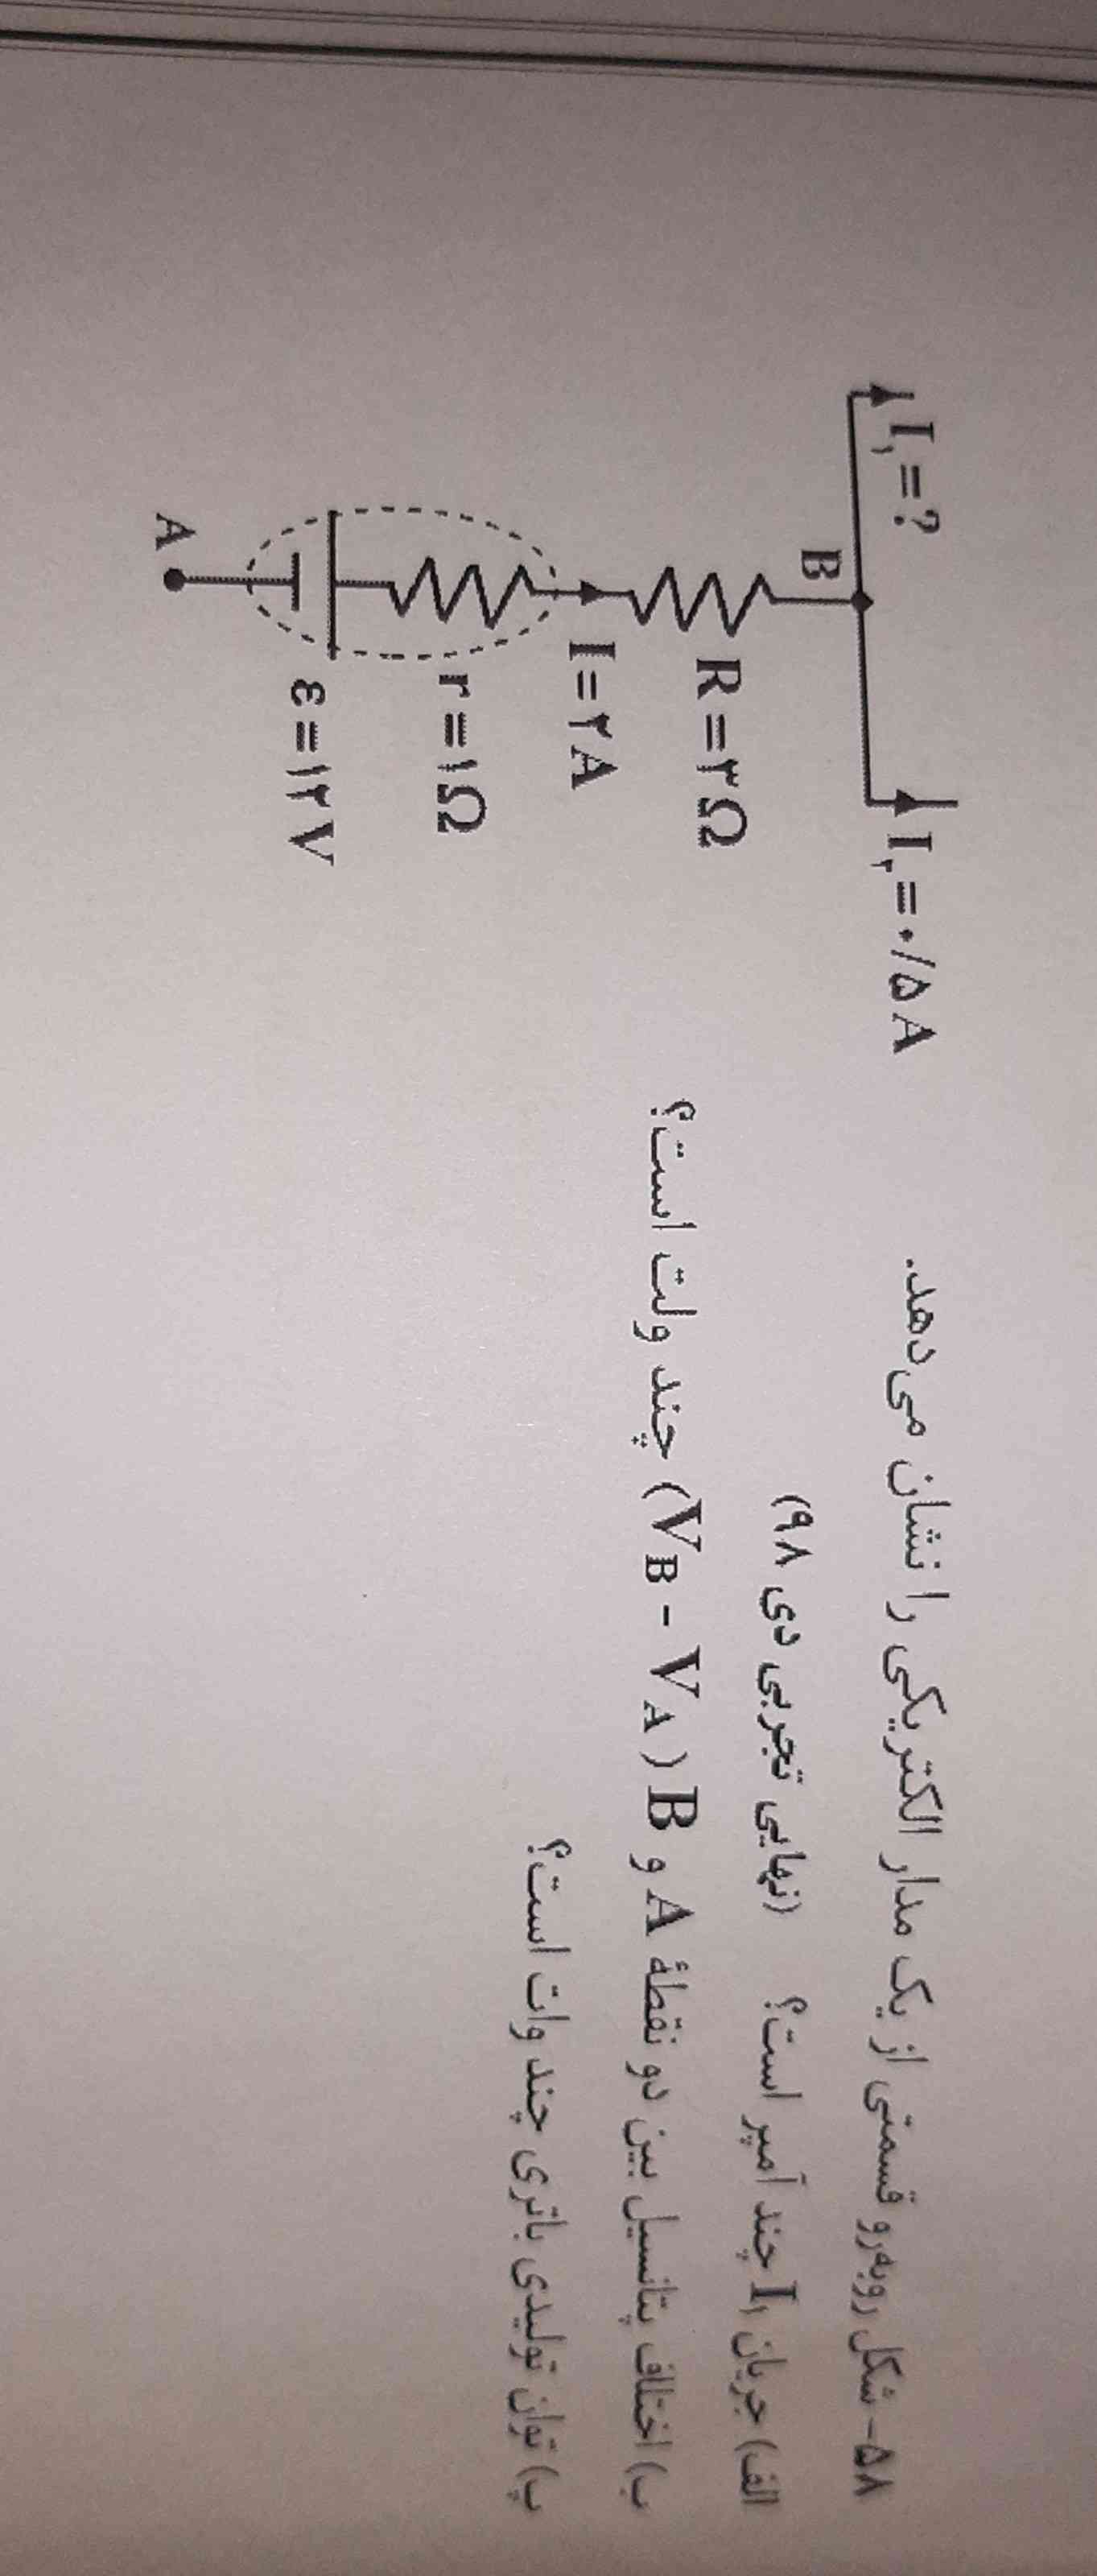 ۵۸- شکل روبه‌رو قسمتی از یک مدار الکتریکی را نشان می‌دهد.
الف) جریان I₁ چند آمپر است؟ (نهایی تجربی دی ۹۸)
ب) اختلاف پتانسیل بین دو نقطهٔ A و B (V_B - V_A) چند ولت است؟
پ) توان تولیدی باتری چند وات است؟
I₁ = ?
I₂ = ۰/۵ A
B
R = ۳Ω
I = ۲ A
r = ۱Ω
ε = ۱۲ V
A